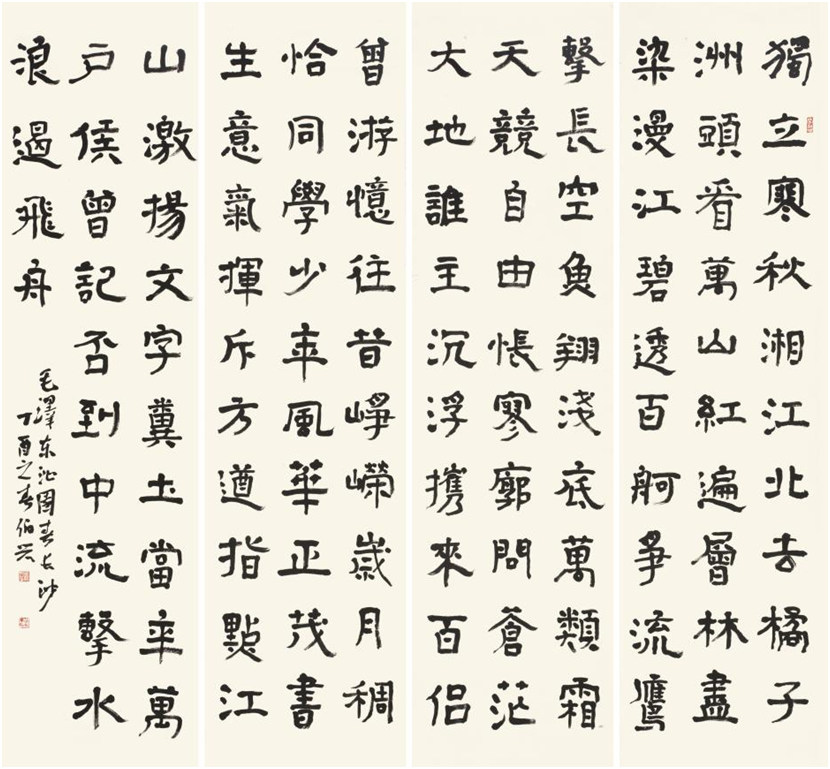 獨立寒秋湘江北去橘子
洲頭看萬山紅遍層林盡
染漫江碧透百舸爭流鷹
擊長空魚翔淺底萬類霜
天競自由悵寥廓問蒼茫
大地誰主沉浮携來百侶
曾游憶往昔崢嶸歲月稠
恰同學少年風華正茂書
生意氣揮斥方遒指點江
山激揚文字糞土當年萬
戶侯曾記否到中流擊水
浪遏飛舟
毛澤东沁園春长沙
丁酉之春伯兴